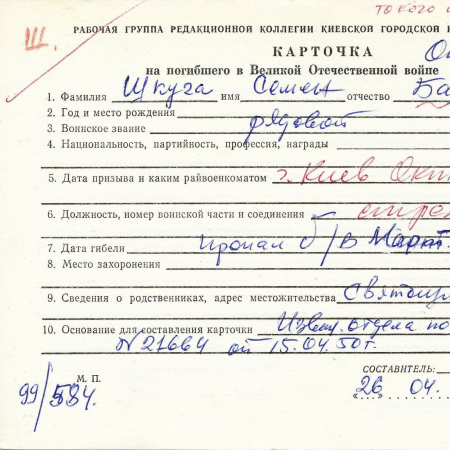 того
Ш.
РАБОЧАЯ ГРУППА РЕДАКЦИОННОЙ КОЛЛЕГИИ КИЕВСКОЙ ГОРОДСКОЙ К
КАРТОЧКА
на погибшего в Великой Отечественной войне
1. Фамилия Шкуга имя Семен отчество Ба
2. Год и место рождения
3. Воинское звание рядовой
4. Национальность, партийность, профессия, награды
5. Дата призыва и каким райвоенкоматом г. Киев Окт
6. Должность, номер воинской части и соединения стрел
7. Дата гибели пропал б/в Март.
8. Место захоронения
9. Сведения о родственниках, адрес местожительства Святош
10. Основание для составления карточки Извещ. отдела по
N 21664 от 15.04.50г.
СОСТАВИТЕЛЬ:
М. П.
99/584.
«26» 04.